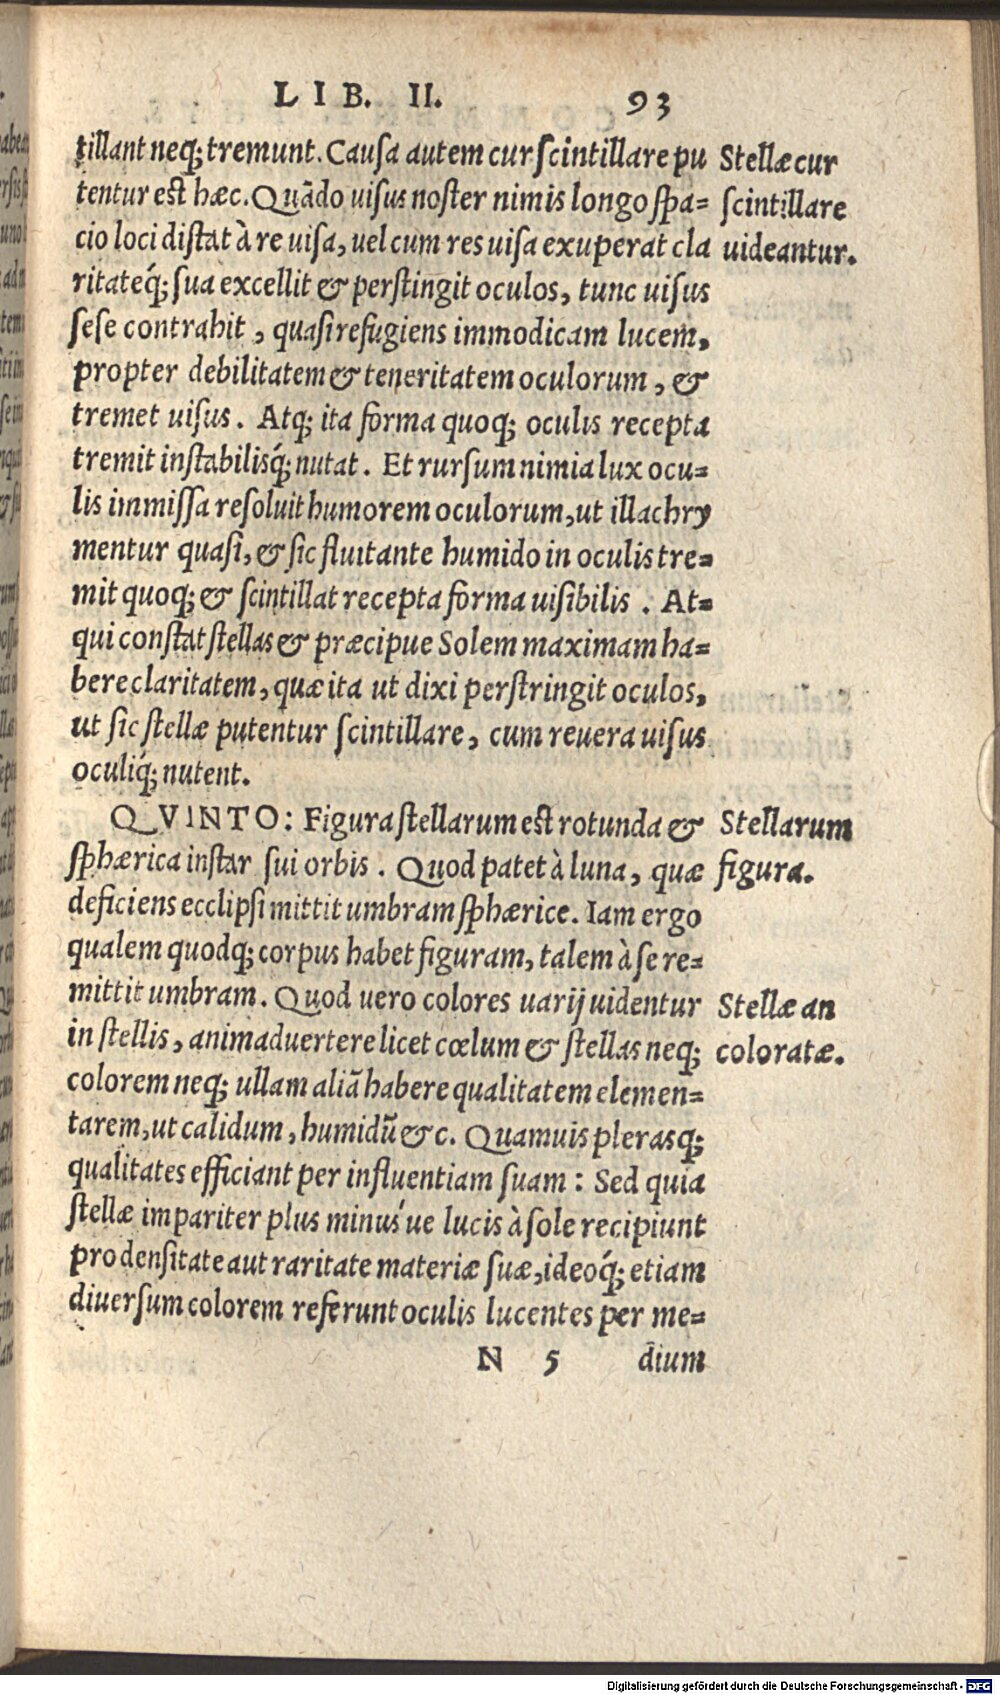 LIB. II. 93
tillant neq; tremunt. Causa autem cur scintillare pu
tentur est hæc. Quãdo uisus noster nimis longo spa-
cio loci distat à re uisa, uel cum res uisa exuperat cla
ritateq́; sua excellit & perstingit oculos, tunc uisus
sese contrahit, quasi refugiens immodicam lucem,
propter debilitatem & teneritatem oculorum, &
tremet uisus. Atq; ita forma quoq; oculis recepta
tremit instabilisq́; nutat. Et rursum nimia lux ocu-
lis immissa resoluit humorem oculorum, ut illachry
mentur quasi, & sic fluitante humido in oculis tre-
mit quoq; & scintillat recepta forma uisibilis. At-
qui constat stellas & præcipue Solem maximam ha-
bere claritatem, quæ ita ut dixi perstringit oculos,
ut sic stellæ putentur scintillare, cum reuera uisus
oculiq́; nutent.
Stellæ cur
scintillare
uideantur.
QVINTO: Figura stellarum est rotunda &
sphærica instar sui orbis. Quod patet à luna, quæ
deficiens ecclipsi mittit umbram sphærice. Iam ergo
qualem quodq; corpus habet figuram, talem à se re-
mittit umbram. Quod uero colores uarij uidentur
in stellis, animaduertere licet cœlum & stellas neq;
colorem neq; ullam aliã habere qualitatem elemen-
tarem, ut calidum, humidũ &c. Quamuis plerasq;
qualitates efficiant per influentiam suam: Sed quia
stellæ impariter plus minus'ue lucis à sole recipiunt
pro densitate aut raritate materiæ suæ, ideoq́; etiam
diuersum colorem referunt oculis lucentes per me-
Stellarum
figura.
Stellæ an
coloratæ.
N 5 dium
Digitalisierung gefördert durch die Deutsche Forschungsgemeinschaft - DFG